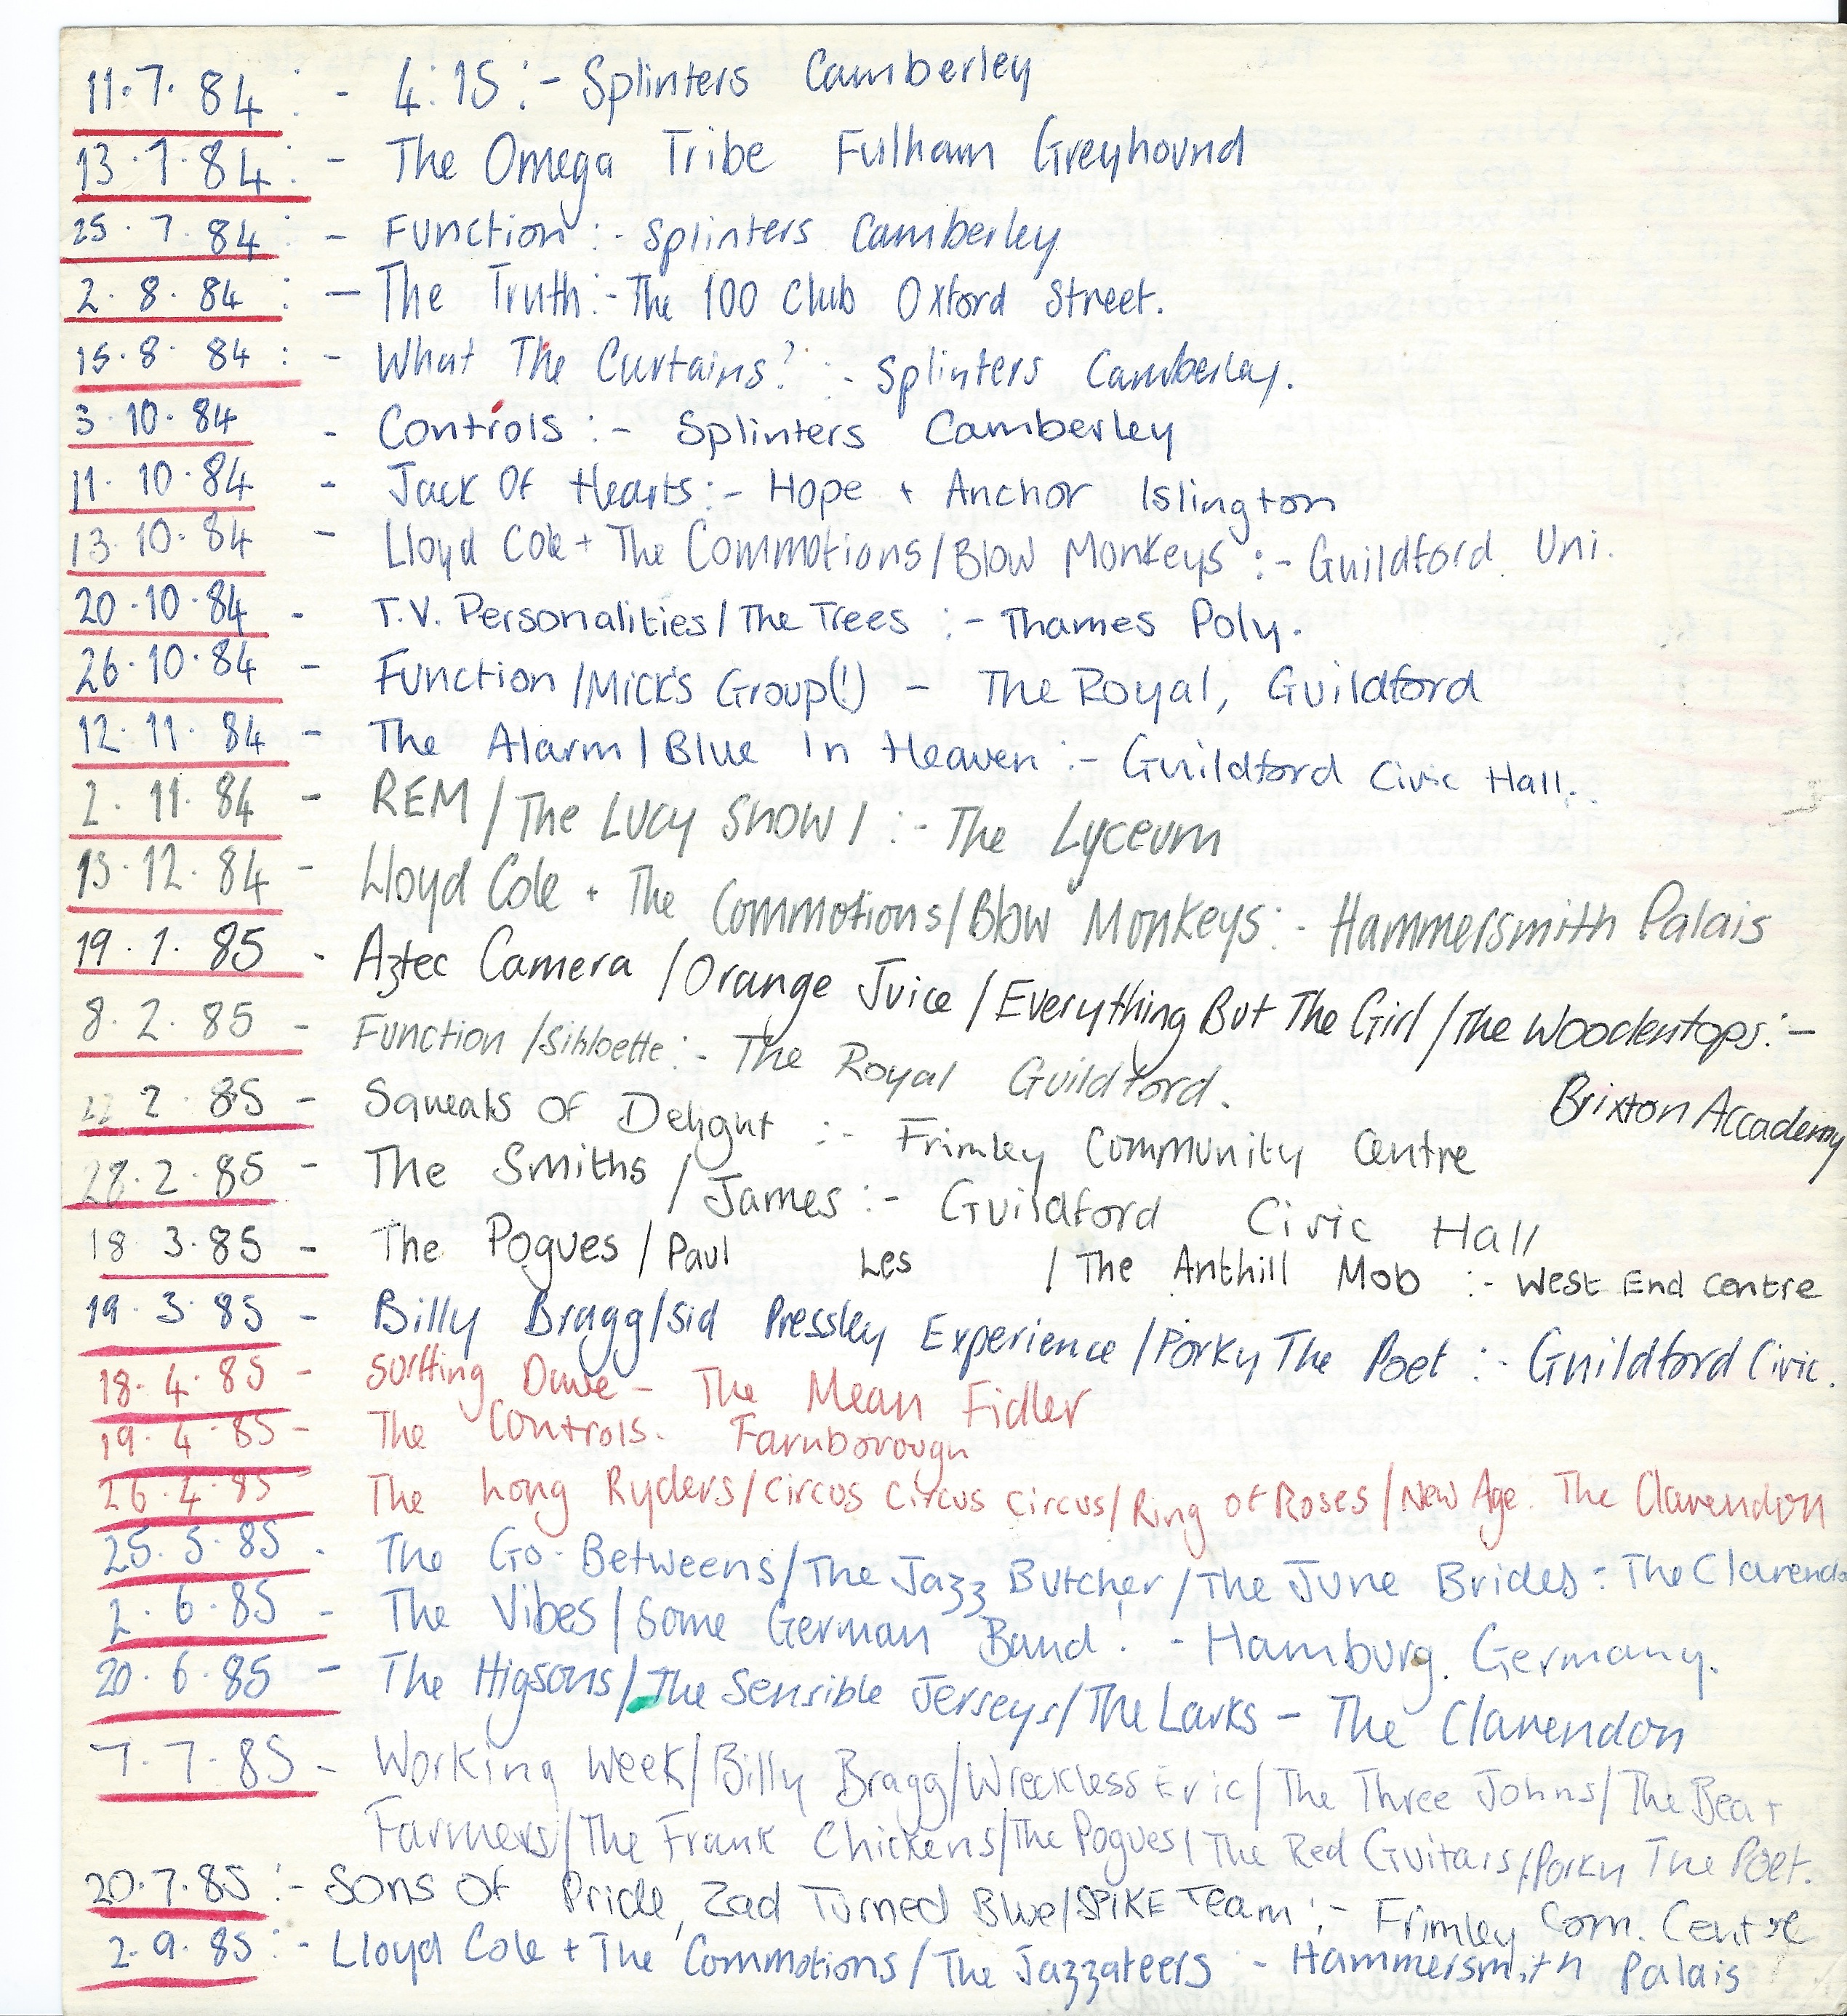 11.7.84 :- 4:15 :- Splinters Camberley
13.7.84 :- The Omega Tribe Fulham Greyhound
25.7.84 :- Function :- Splinters Camberley
2.8.84 :- The Truth :- The 100 Club Oxford Street.
15.8.84 :- What The Curtains? :- Splinters Camberley.
3.10.84 - Controls :- Splinters Camberley
11.10.84 - Jack Of Hearts :- Hope + Anchor Islington
13.10.84 - Lloyd Cole + The Commotions/Blow Monkeys :- Guildford Uni.
20.10.84 - T.V. Personalities/The Trees :- Thames Poly.
26.10.84 - Function/Mick's Group(!) - The Royal, Guildford
12.11.84 - The Alarm/Blue In Heaven :- Guildford Civic Hall.
2.11.84 - REM/The Lucy Show/ :- The Lyceum
13.12.84 - Lloyd Cole + The Commotions/Blow Monkeys :- Hammersmith Palais
19.1.85 - Aztec Camera/Orange Juice/Everything But The Girl/The Woodentops :-
Brixton Accademy
8.2.85 - Function/Sihloette :- The Royal Guildford.
22.2.85 - Squeals Of Delight :- Frimley Community Centre
28.2.85 - The Smiths/James :- Guildford Civic Hall
18.3.85 - The Pogues/Paul Les /The Anthill Mob :- West End Centre
19.3.85 - Billy Bragg/Sid Pressley Experience/Porky The Poet :- Guildford Civic.
18.4.85 - Surfing Dave - The Mean Fidler
19.4.85 - The Controls. Farnborough
26.4.85 - The Long Ryders/Circus Circus Circus/Ring of Roses/New Age. The Clarendon
25.5.85 - The Go-Betweens/The Jazz Butcher/The June Brides : The Clarendo
2.6.85 - The Vibes/Some German Band! - Hamburg. Germany.
20.6.85 - The Higsons/The Sensible Jerseys/The Larks - The Clarendon
7.7.85 - Working Week/Billy Bragg/Wreckless Eric/The Three Johns/The Beat
Farmers/The Frank Chickens/The Pogues/The Red Guitars/Porky The Poet.
20.7.85 :- Sons Of Pride, Zad Turned Blue/SPIKE Team :- Frimley Com. Centre
2.9.85 :- Lloyd Cole + The Commotions/The Jazzateers - Hammersmith Palais